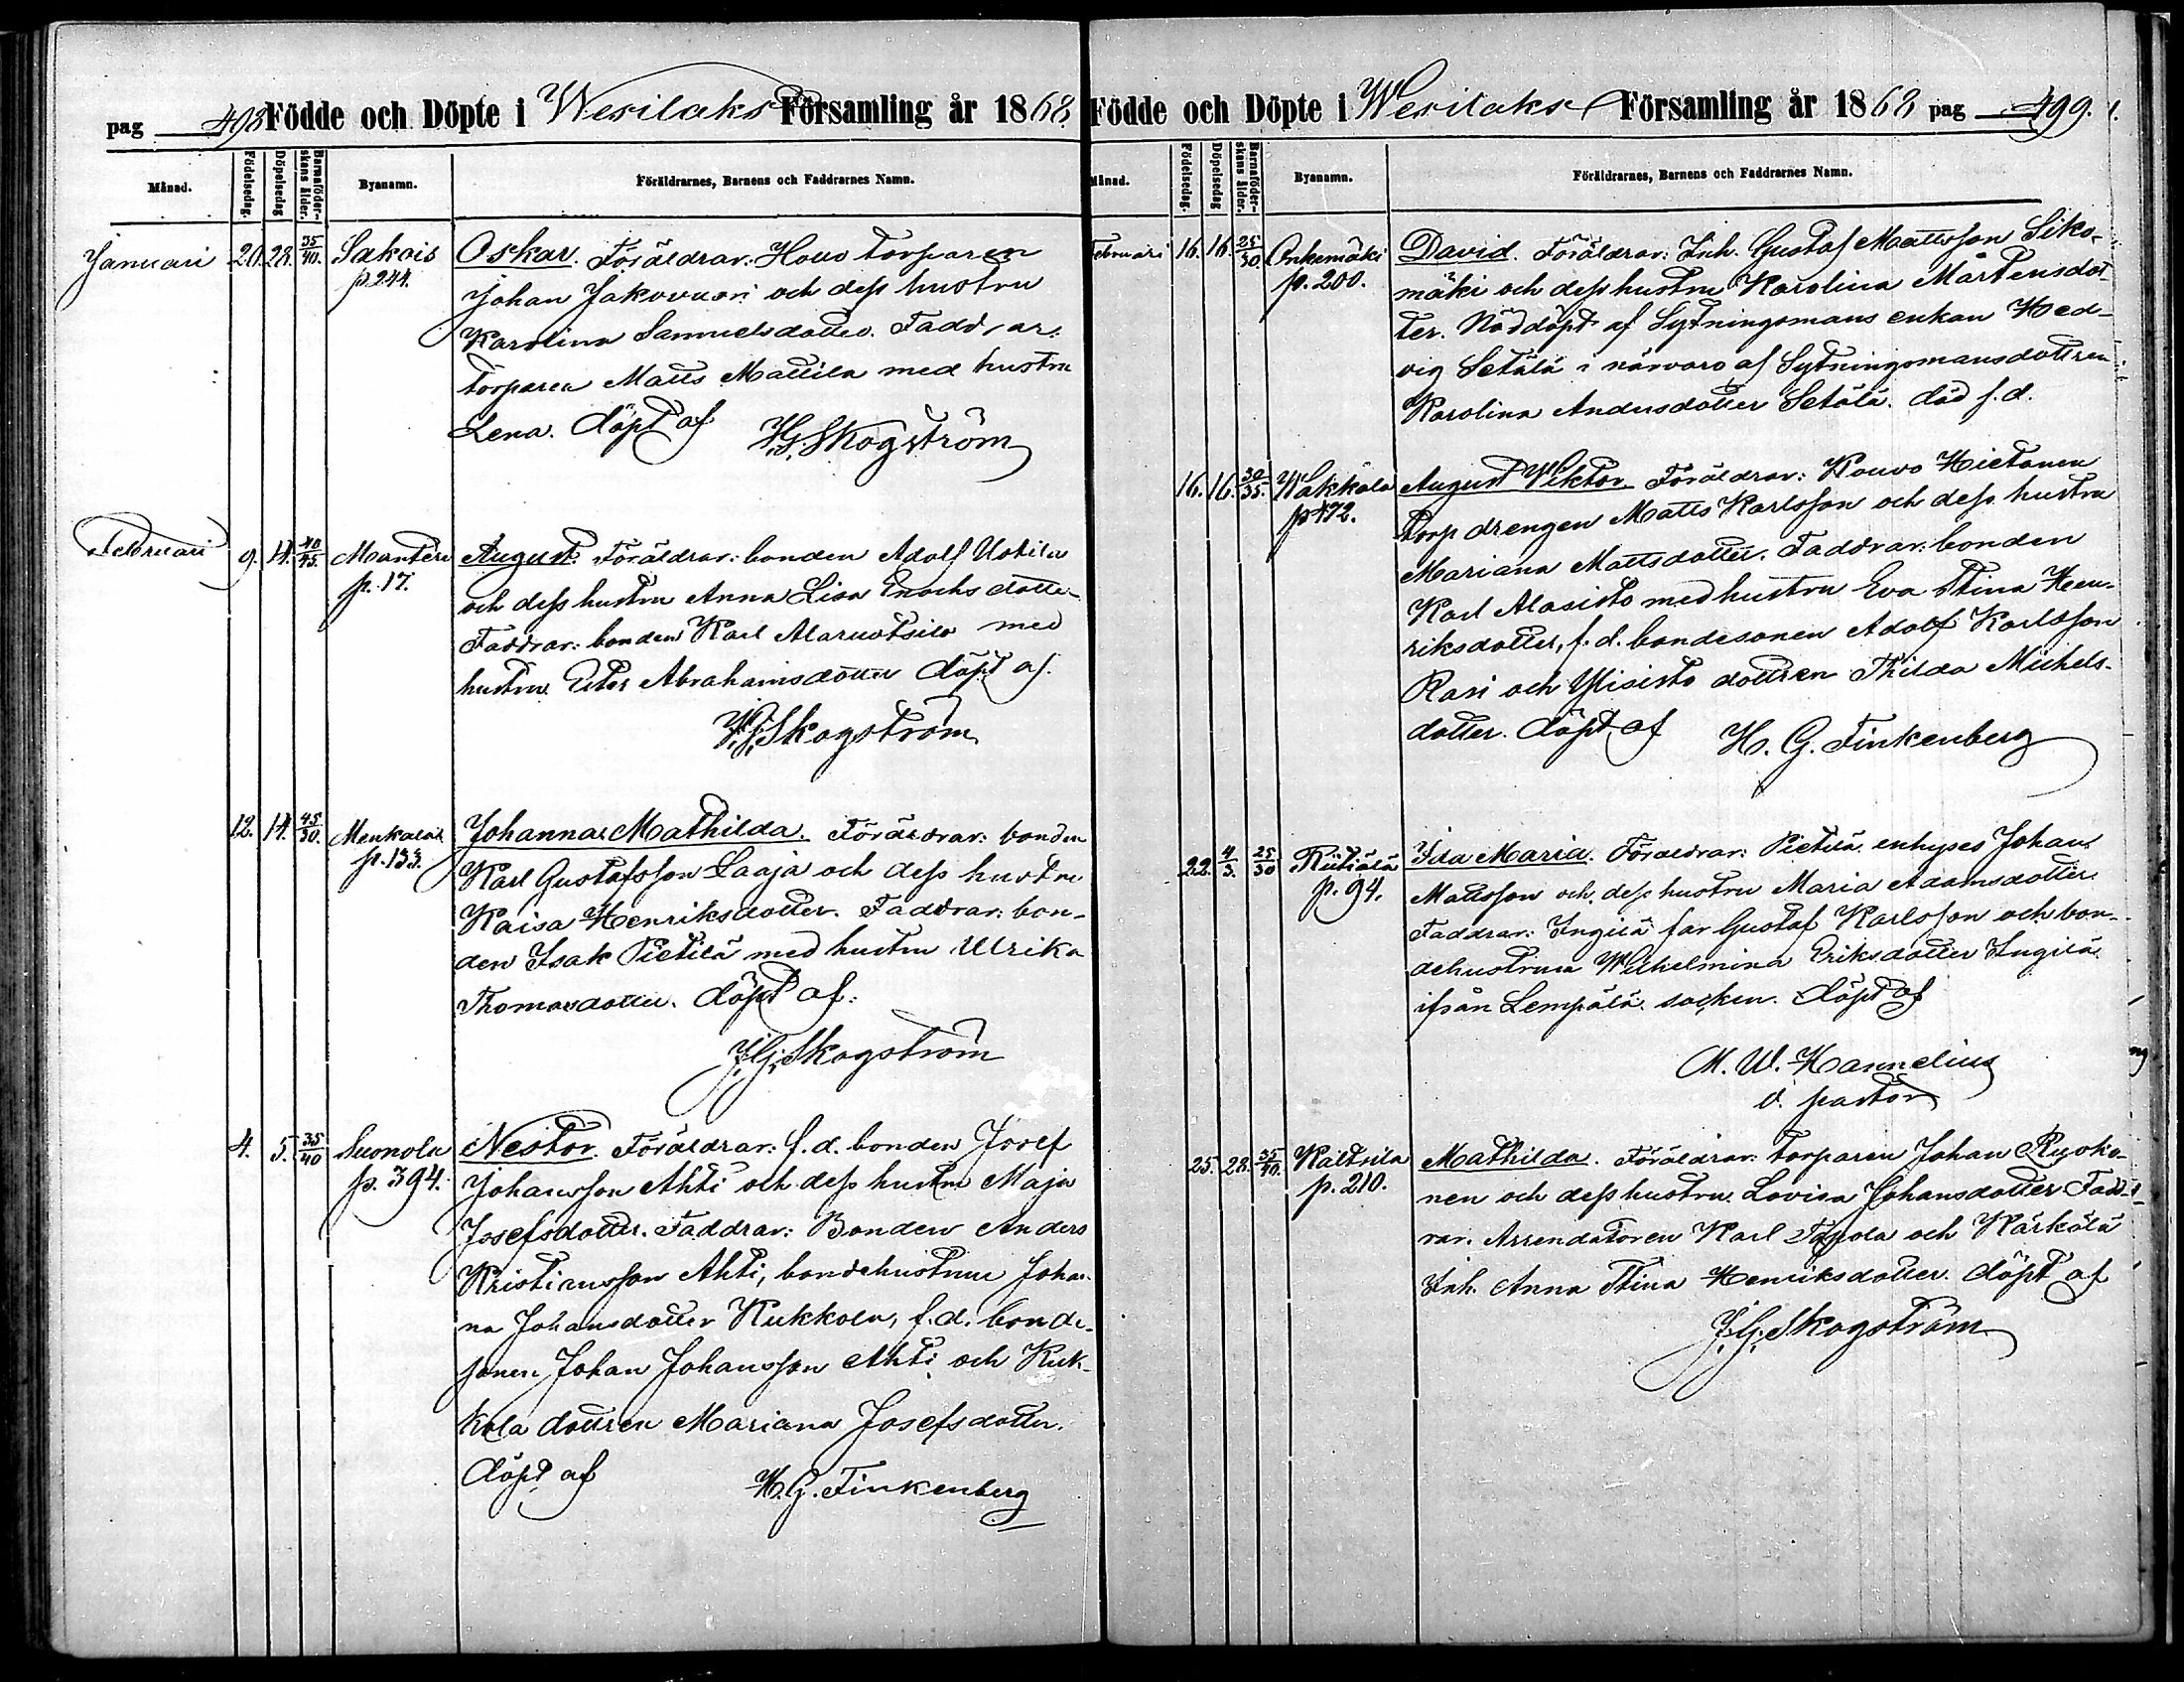 pag 498 Födde och Döpte i Wesilaks Församling år 1868
Månad. Födelsedag. Döpelsedag Barnaföderskans ålder. Byanamn. Föräldrarnes, Barnens och Faddrarnes Namn.
Januari 20. 28. 35/40. Sakois Oskar. Föräldrar: Hous torparen
p. 244. Johan Jakovuori och dess hustru
Karolina Samuelsdotter. Faddrar:
torparen Matts Mattila med hustru
Lena. döpt af H. G. Skogström
Februari 9. 14. 40/45. Mantere August. Föräldrar: bonden Adolf Uotila
p. 17. och dess hustru Anna Lisa Enochsdotter
Faddrar: bonden Karl Alaruotsila med
hustru Ester Abrahamsdotter döpt af.
J. G. Skogström
12. 14. 45/50. Menkala Johanna Mathilda. Föräldrar: bonden
p. 133. Karl Gustafsson Laaja och dess hustru
Kaisa Henriksdotter. Faddrar: bon-
den Isak Pietilä med hustru Ulrika
Thomasdotter. döpt af:
J. G. Skogström
4. 5. 35/40 Suonola Nestor. Föräldrar: f. d. bonden Josef
p. 394. Johansson Ahti och dess hustru Maja
Josefsdotter. Faddrar: Bonden Anders
Kristiansson Ahti, bondehustrun Johan-
na Johansdotter Kukkola, f. d. bonde-
sonen Johan Johansson Ahti och Kuk-
kola dottren Mariana Josefsdotter.
döpt af H. G. Finkenberg
Födde och Döpte i Wesilaks Församling år 1868 pag 499.
Månad. Födelsedag. Döpelsedag Barnaföderskans ålder. Byanamn. Föräldrarnes, Barnens och Faddrarnes Namn.
Februari 16. 16. 25/30. Onkemäki David. Föräldrar: Inh. Gustaf Mattsson Siko-
p. 200. mäki och dess hustru Karolina Mårtensdot-
ter. Nöddöpt af Sytningsmans enkan Hed-
vig Setälä i närvaro af Sytningsmansdottren
Karolina Andersdotter Setälä. död s. d.
16. 16. 30/35. Wakkala August Viktor. Föräldrar: Kouvo Hietanen
p. 172. torp drengen Matts Karlsson och dess hustru
Mariana Mattsdotter. Faddrar: bonden
Karl Alasisto med hustru Eva Stina Hen-
riksdotter, f. d. bondesonen Adolf Karlsson
Rasi och Ylisisto dottren Thilda Michels-
dotter. döpt af H. G. Finkenberg
22. 4/3. 25/30 Riitiälä Ida Maria. Föräldrar: Pietilä inhyses Johan
p. 94. Mattsson och dess hustru Maria Adamsdotter
Faddrar: Ingilä far Gustaf Karlsson och bon-
dehustrun Wilhelmina Eriksdotter Ingilä
ifrån Lempälä socken. döpt af
M. W. Hannelius
v. pastor
25. 28. 35/40. Kaltsila Mathilda. Föräldrar: torparen Johan Ruoko-
p. 210. nen och dess hustru Lovisa Johansdotter Fadd-
rar. Arrendatoren Karl Tapola och Kärkälä
Inh. Anna Stina Henriksdotter. döpt af
J. G. Skogström